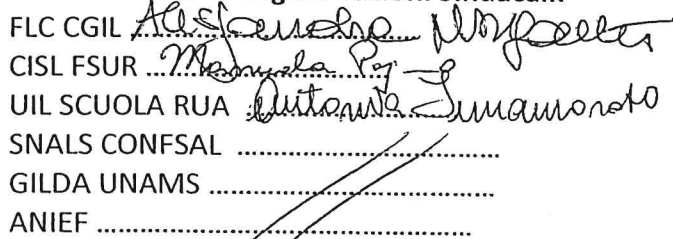 FLC CGIL Alessandra
CISL FSUR ... Manuela
UIL SCUOLA RUA Antonia Innamorato
SNALS CONFSAL ..............................
GILDA UNAMS ................................
ANIEF ..........................................